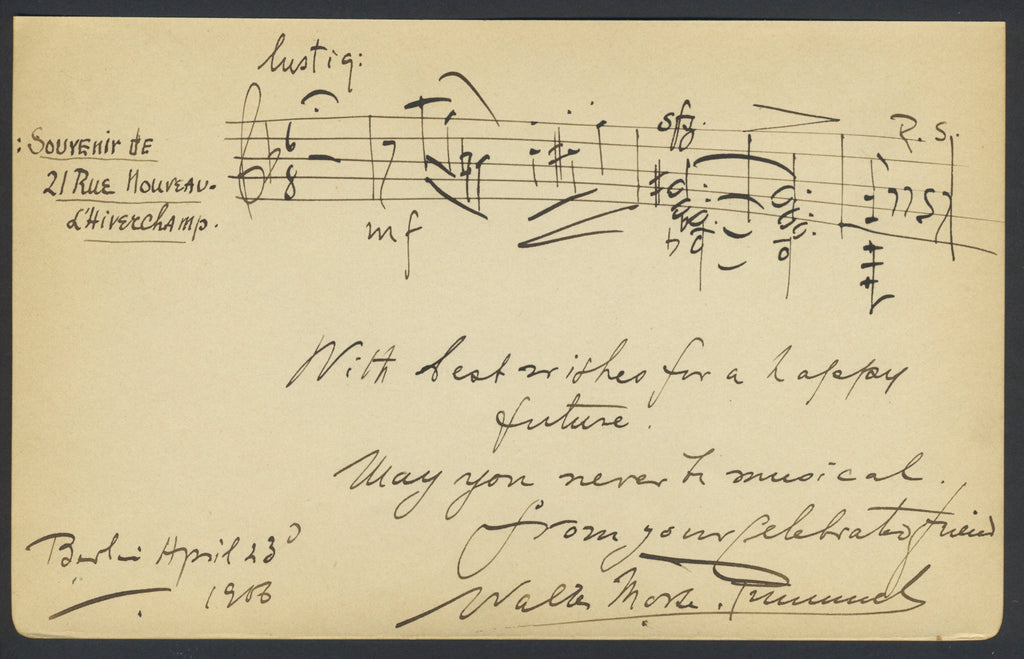 lustig:
: Souvenir de
21 Rue Nouveau-
d'Hiverchamp.
6
8
mf
sfz.
R. S.
With best wishes for a happy
future.
May you never be musical.
From your celebrated friend
Walter Morse Rummel
Berlin April 23d
1906